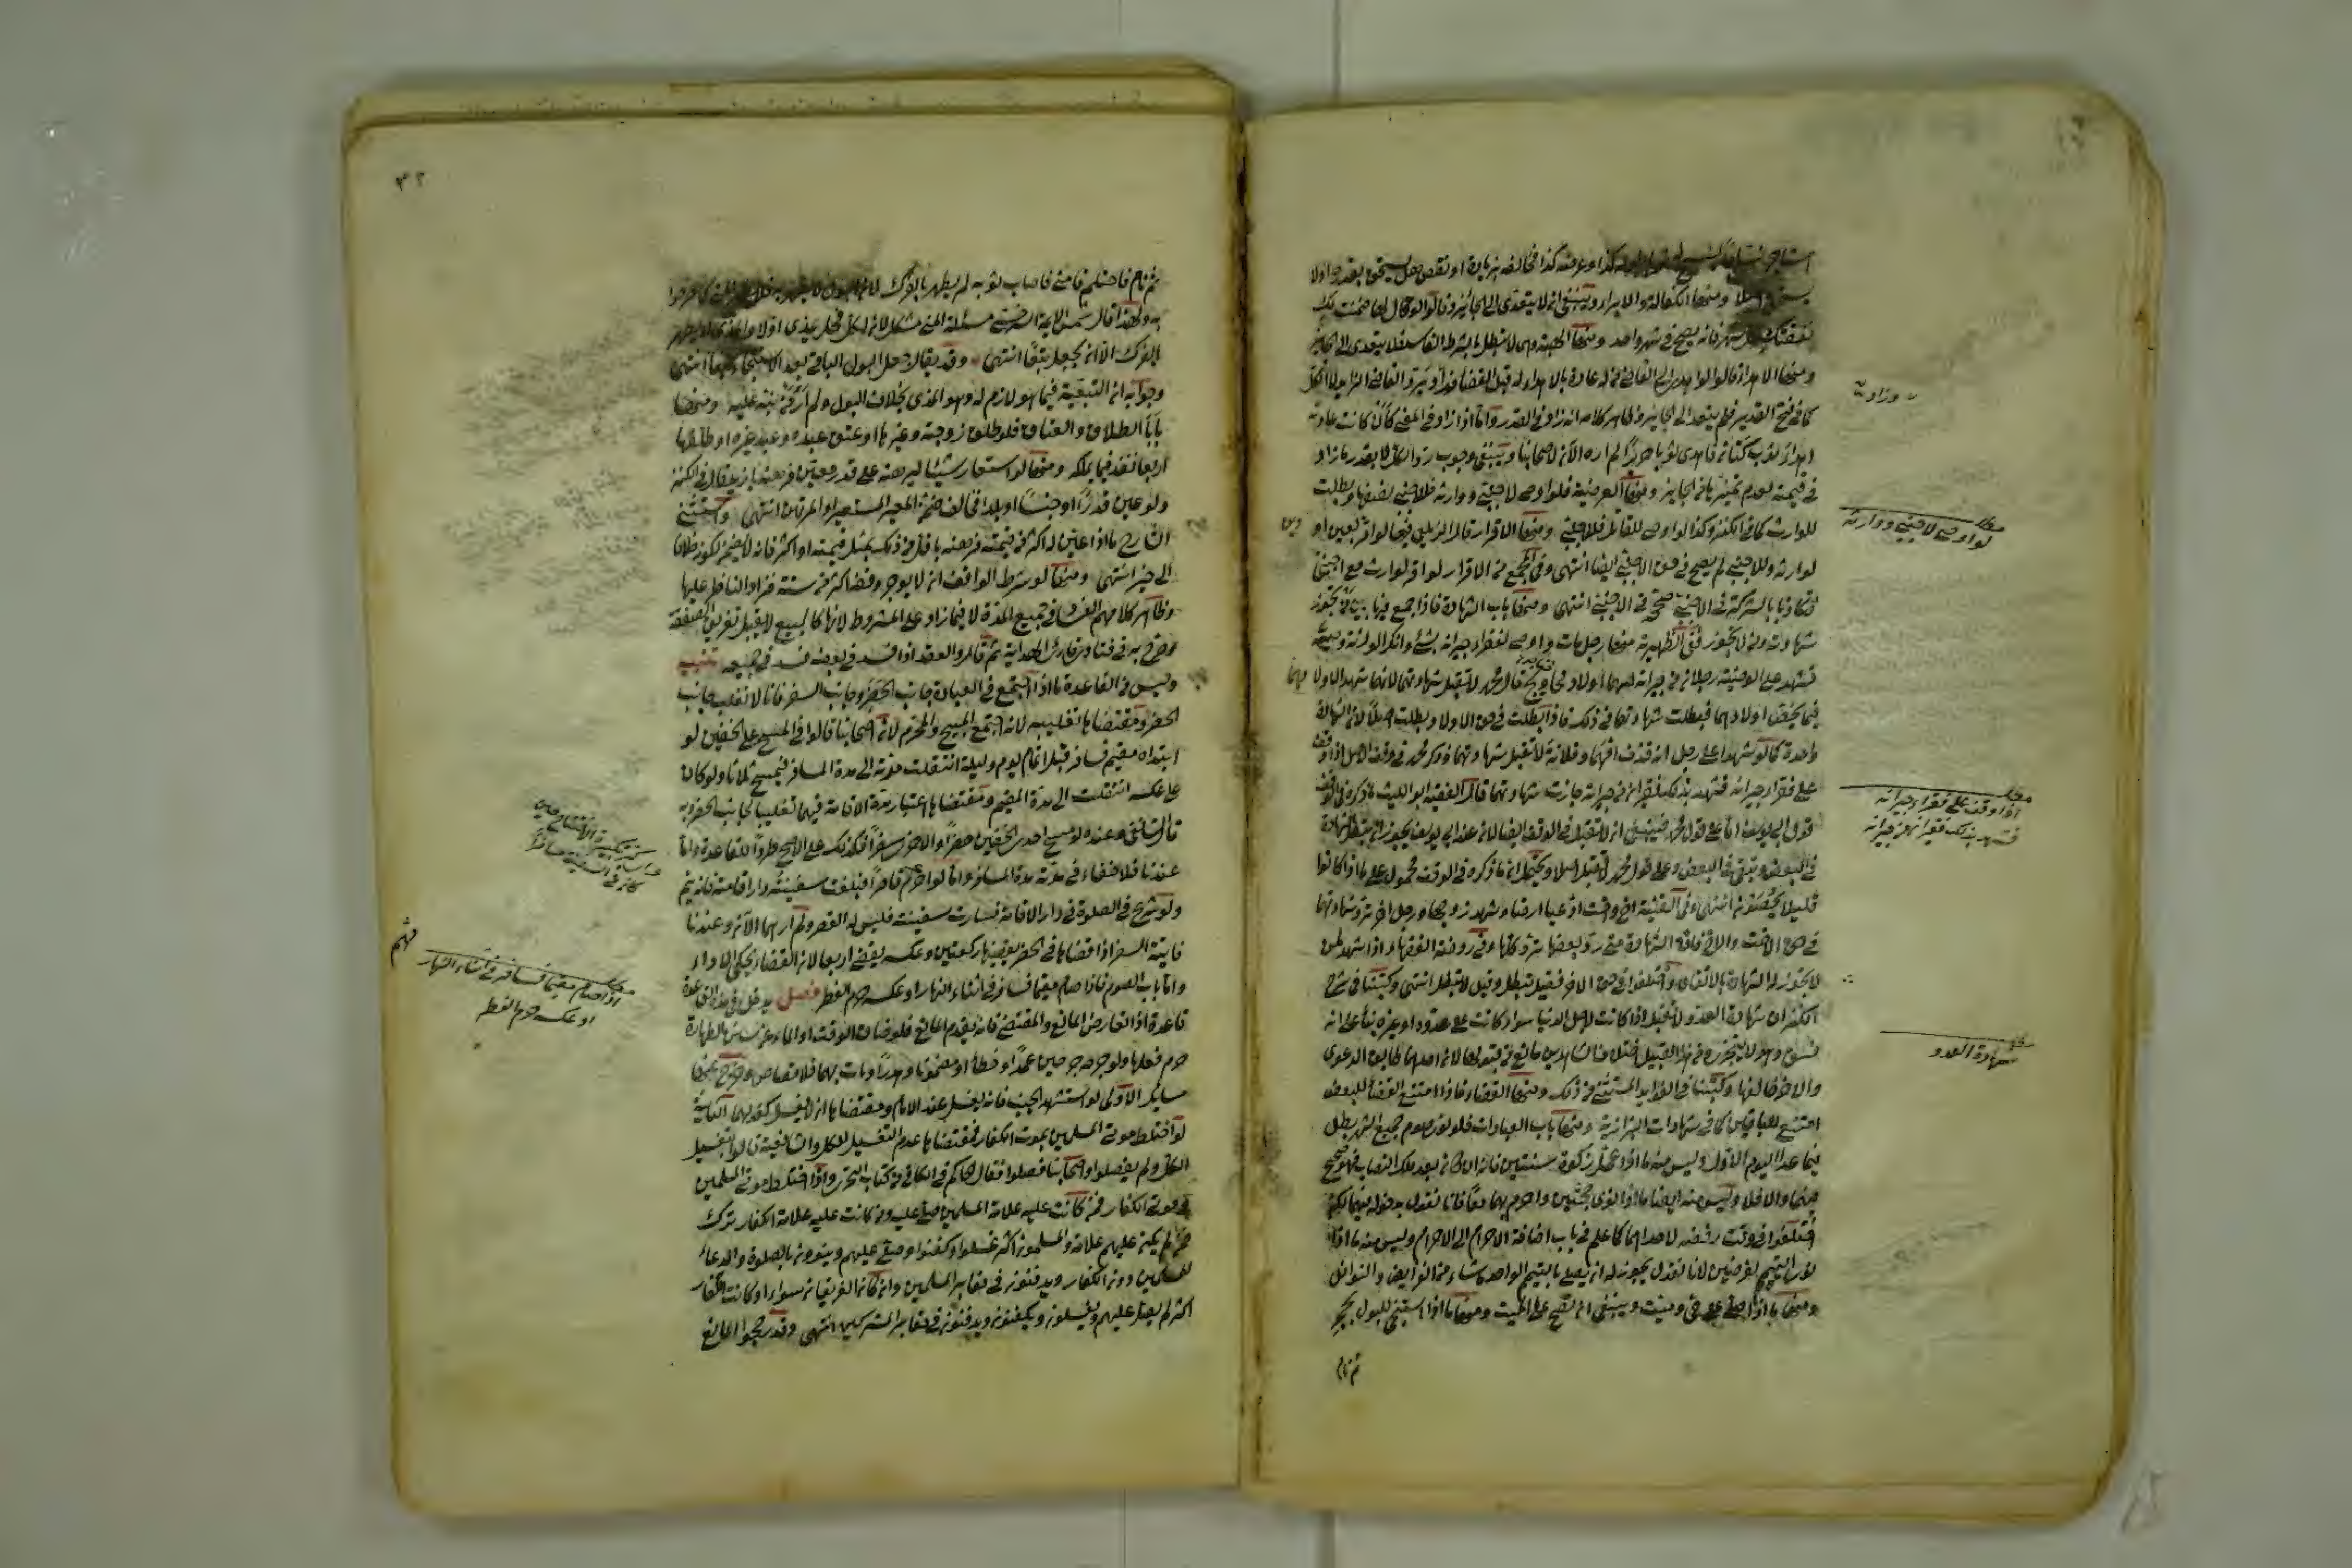 استاجر نساجا لينسج له ثوبا طوله كذا وعرضه كذا فخالف بزيادة او نقص هل يستحق بقدره اولا
يستحق اصلا ومنها الكفالة والابراء وينبغي ان لا يتعدى الى الجائز وقالوا لو قال لها ضمنت لك
نفقتك كل شهر فانه يصح في شهر واحد ومنها الهبة وهي لا تبطل بالشرط الفاسد فلا يتعدى الى الجائز
ومنها الاهداء قالوا لو اهدى الى القاضي من له عادة بالاهداء له قبل القضاء وزاد يرد القاضي الزايد لا الكل
كما في فتح القدير فلم يتعد الى الجايز وظاهر كلامه انه زاد في القدر واما اذا زاد في المعنى كان كانت عادته
اهداء ثوب كتان فاهدى ثوبا حريرا لم اره الآن لاصحابنا وينبغي وجوب رد الكل لا بقدر ما زاد
في قيمته لعدم تميزها من الجايز ومنها الوصية فلو اوصى لاجنبي ووارثه فللاجنبي نصفها وبطلت
للوارث كما في الكنز وكذا لو اوصى للقاتل وللاجنبي ومنها الاقرار قال الزيلعي فيها لو اقر بعين او دين
لوارثه وللاجنبي لم يصح في حق الاجنبي ايضا انتهى وفي المجمع من الاقرار لو اقر لوارث مع اجنبي
فتكاذبا بالشركة في الاجنبي صححه في الاجنبي انتهى ومنها باب الشهادة فاذا جمع فيها بين من تجوز
شهادته ومن لا تجوز ففي الظهيرية منها رجل مات واوصى لفقراء جيرانه بشئ وانكر الورثة وصيته
فشهد على الوصية رجلان من جيرانه لهما اولاد محاويج قال محمد لا تقبل شهادتهما لانهما شهدا لاولادهما
فيما يخص اولادهما فبطلت شهادتهما في ذلك فاذا بطلت في حق الاولاد بطلت اصلا لان الشهادة
واحدة كما لو شهدا على رجل انه قذف امهما وفلانة لا تقبل شهادتهما وذكر محمد في وقف الاصل اذا وقف
على فقراء جيرانه فشهد بذلك فقيران من جيرانه جازت شهادتهما قال الفقيه ابو الليث ما ذكر في الوقف
قول ابي يوسف اما على قول محمد فينبغي ان لا تقبل في الوقف ايضا لان عند ابي يوسف يجوز ان تبطل الشهادة
في البعض وتبقى في البعض وعلى قول محمد لا تقبل اصلا ويحتمل ان ما ذكره في الوقف محمول على ما اذا كانوا
قليلا يحصون انتهى وفي القنية اخ واخت ادعيا ارضا وشهد زوجها ورجل اخر ترد شهادتهما
في حق الاخت والاخ فان الشهادة متى رد بعضها ترد كلها وفي روضة الفقهاء اذا شهد لمن
لا تجوز له الشهادة بالاتفاق واختلفوا في حق الاخر فقيل تبطل وقيل لا تبطل انتهى وكتبنا في شرح
الكنز ان شهادة العدو لا تقبل اذا كانت لاجل الدنيا سواء كانت على عدوه او غيره بناء على انه
فسق وهو لا يتجزء ومن هذا القبيل اختلاف الشاهدين مانع من قبولها لان احدهما طابق الدعوى
والاخر خالفها وكتبنا في الفوايد المستثنى من ذلك ومنها القضاء فاذا امتنع القضاء للبعض
امتنع للباقين كما في شهادات البزازية ومنها باب العبادات فلو نوى صوم جميع الشهر بطل
فيما عدا اليوم الاول وليس منه ما اذا عجل زكوة سنتين فانه ان كان بعد ملك النصاب فهو صحيح
فيهما والا فلا وليس منه ايضا ما اذا نوى حجتين واحرم بهما معا فانا نقول بدخوله فيهما لكن
اختلفوا في وقت رفضه لاحداهما كما علم في باب اضافة الاحرام الى الاحرام وليس منه ما اذا
نوى التيمم لفرضين لانا نقول يجوز له ان يصلي بالتيمم الواحد ما شاء من الفرايض والنوافل
ومنها ما اذا صلى على حي وميت وينبغي ان تصح على الميت ومنها ما اذا استنجى للبول بحجر
ثم نام
وزاد منه
مطلب
لو اوصى لاجنبي ووارثه
مطلب
اذا وقف على فقراء جيرانه
فشهد بذلك فقيران من جيرانه
مطلب
شهادة العدو
٣٢
ثم نام فاحتلم فامنى فاصاب ثوبه لم يطهر بالفرك لان البول لا يطهر به فلا يطهر المني كما صرحوا
به ولهذا قال شمس الايمة السرخسي مسئلة المني مشكل لان كل فحل يمذي اولا والمذي لا يطهر
بالفرك الا ان يجعل تبعا انتهى وقد يقال لا جعل البول الباقي بعد الاستنجاء تبعا انتهى
وجوابه ان التبعية فيما هو لازم له وهو المذي بخلاف البول ولم ار من نبه عليه ومنها
بابا الطلاق والعتاق فلو طلق زوجته وغيرها او عتق عبده وعبد غيره او طلقها
اربعا نفذ فيما يملكه ومنها لو استعار شيئا ليرهنه على قدر معين فرهنه بازيد قال في الكنز
ولو عين قدرا او جنسا او بلدا فخالف ضمن المعير المستعير او المرتهن انتهى واستثنى
الشارح ما اذا عين له اكثر من قيمته فرهنه باقل من ذلك بمثل قيمته او اكثر فانه لا يضمن لكونه خلافا
الى خير انتهى ومنها لو شرط الواقف ان لا يوجر وقفه اكثر من سنة فزاد الناظر عليها
وظاهر كلامهم الفساد في جميع المدة لا فيما زاد على المشروط لانها كالبيع لا يقبل تفريق الصفقة
وصرح به في فتاوى قارئ الهداية ثم قال والعقد اذا فسد في بعضه فسد في جميعه تنبيه
وليس من القاعدة ما اذا اجتمع في العبادة جانب الحضر وجانب السفر فانا لا نغلب جانب
الحضر ومقتضاها تغليبه لانه اجتمع المبيح والمحرم لان اصحابنا قالوا في المسح على الخفين لو
ابتداه مقيم فسافر قبل اتمام يوم وليلة انتقلت مدته الى مدة المسافر فيمسح ثلاثا ولو كان
على عكسه انتقلت الى مدة المقيم ومقتضاها اعتبار مدة الاقامة فيهما تغليبا لجانب الحضر وبه
قال الشافعي وعنده لو مسح احد الخفين حضرا والاخر سفرا فكذلك على الاصح طردا للقاعدة واما
عندنا فلا خفاء في مدته مدة المسافر واما لو احرم قاصرا فبلغت سفينته دار اقامته فانه يتم
ولو شرع في الصلوة في دار الاقامة فسارت سفينته فليس له القصر ولم ارهما الآن وعندنا
فايتة السفر اذا قضاها في الحضر يقضيها ركعتين وعكسه يقضي اربعا لان القضاء يحكي الاداء
واما باب الصوم فاذا صام مقيما فسافر في اثناء النهار او عكسه حرم الفطر فصل يدخل في هذه القاعدة
قاعدة اذا تعارض المانع والمقتضى فانه يقدم المانع فلو ضاق الوقت او الماء عن سنن الطهارة
حرم فعلها ولو جرحه جرحين عمدا وخطأ او مضمونا وهدرا ومات بهما فلا قصاص وخرج عنها
مسايل الاولى لو استشهد الجنب فانه يغسل عند الامام ومقتضاها ان لا يغسل كقولهما الثانية
لو اختلط موتى المسلمين بموتى الكفار فمقتضاها عدم التغسيل للكل والشافعية قالوا بتغسيل
الكل ولم يفصلوا واصحابنا فصلوا فقال الحاكم في الكافي من كتاب التحري واذا اختلط موتى المسلمين
وموتى الكفار فمن كانت عليه علامة المسلمين صلى عليه ومن كانت عليه علامة الكفار ترك
فان لم يكن عليهم علامة والمسلمون اكثر غسلوا وكفنوا وصلى عليهم وينوون بالصلوة والدعاء
للمسلمين دون الكفار ويدفنون في مقابر المسلمين وان كان الفريقان سواء او كانت الكفار
اكثر لم يصل عليهم ويغسلون ويكفنون ويدفنون في مقابر المشركين انتهى وقد رجحوا المانع
مطلب
اذا صام مقيما فسافر في اثناء النهار
او عكسه حرم الفطر
مهم